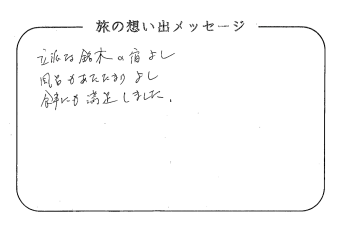 旅の想い出メッセージ
立派な鈴木の宿よし
風呂もあたたまりよし
食事にも満足しました。